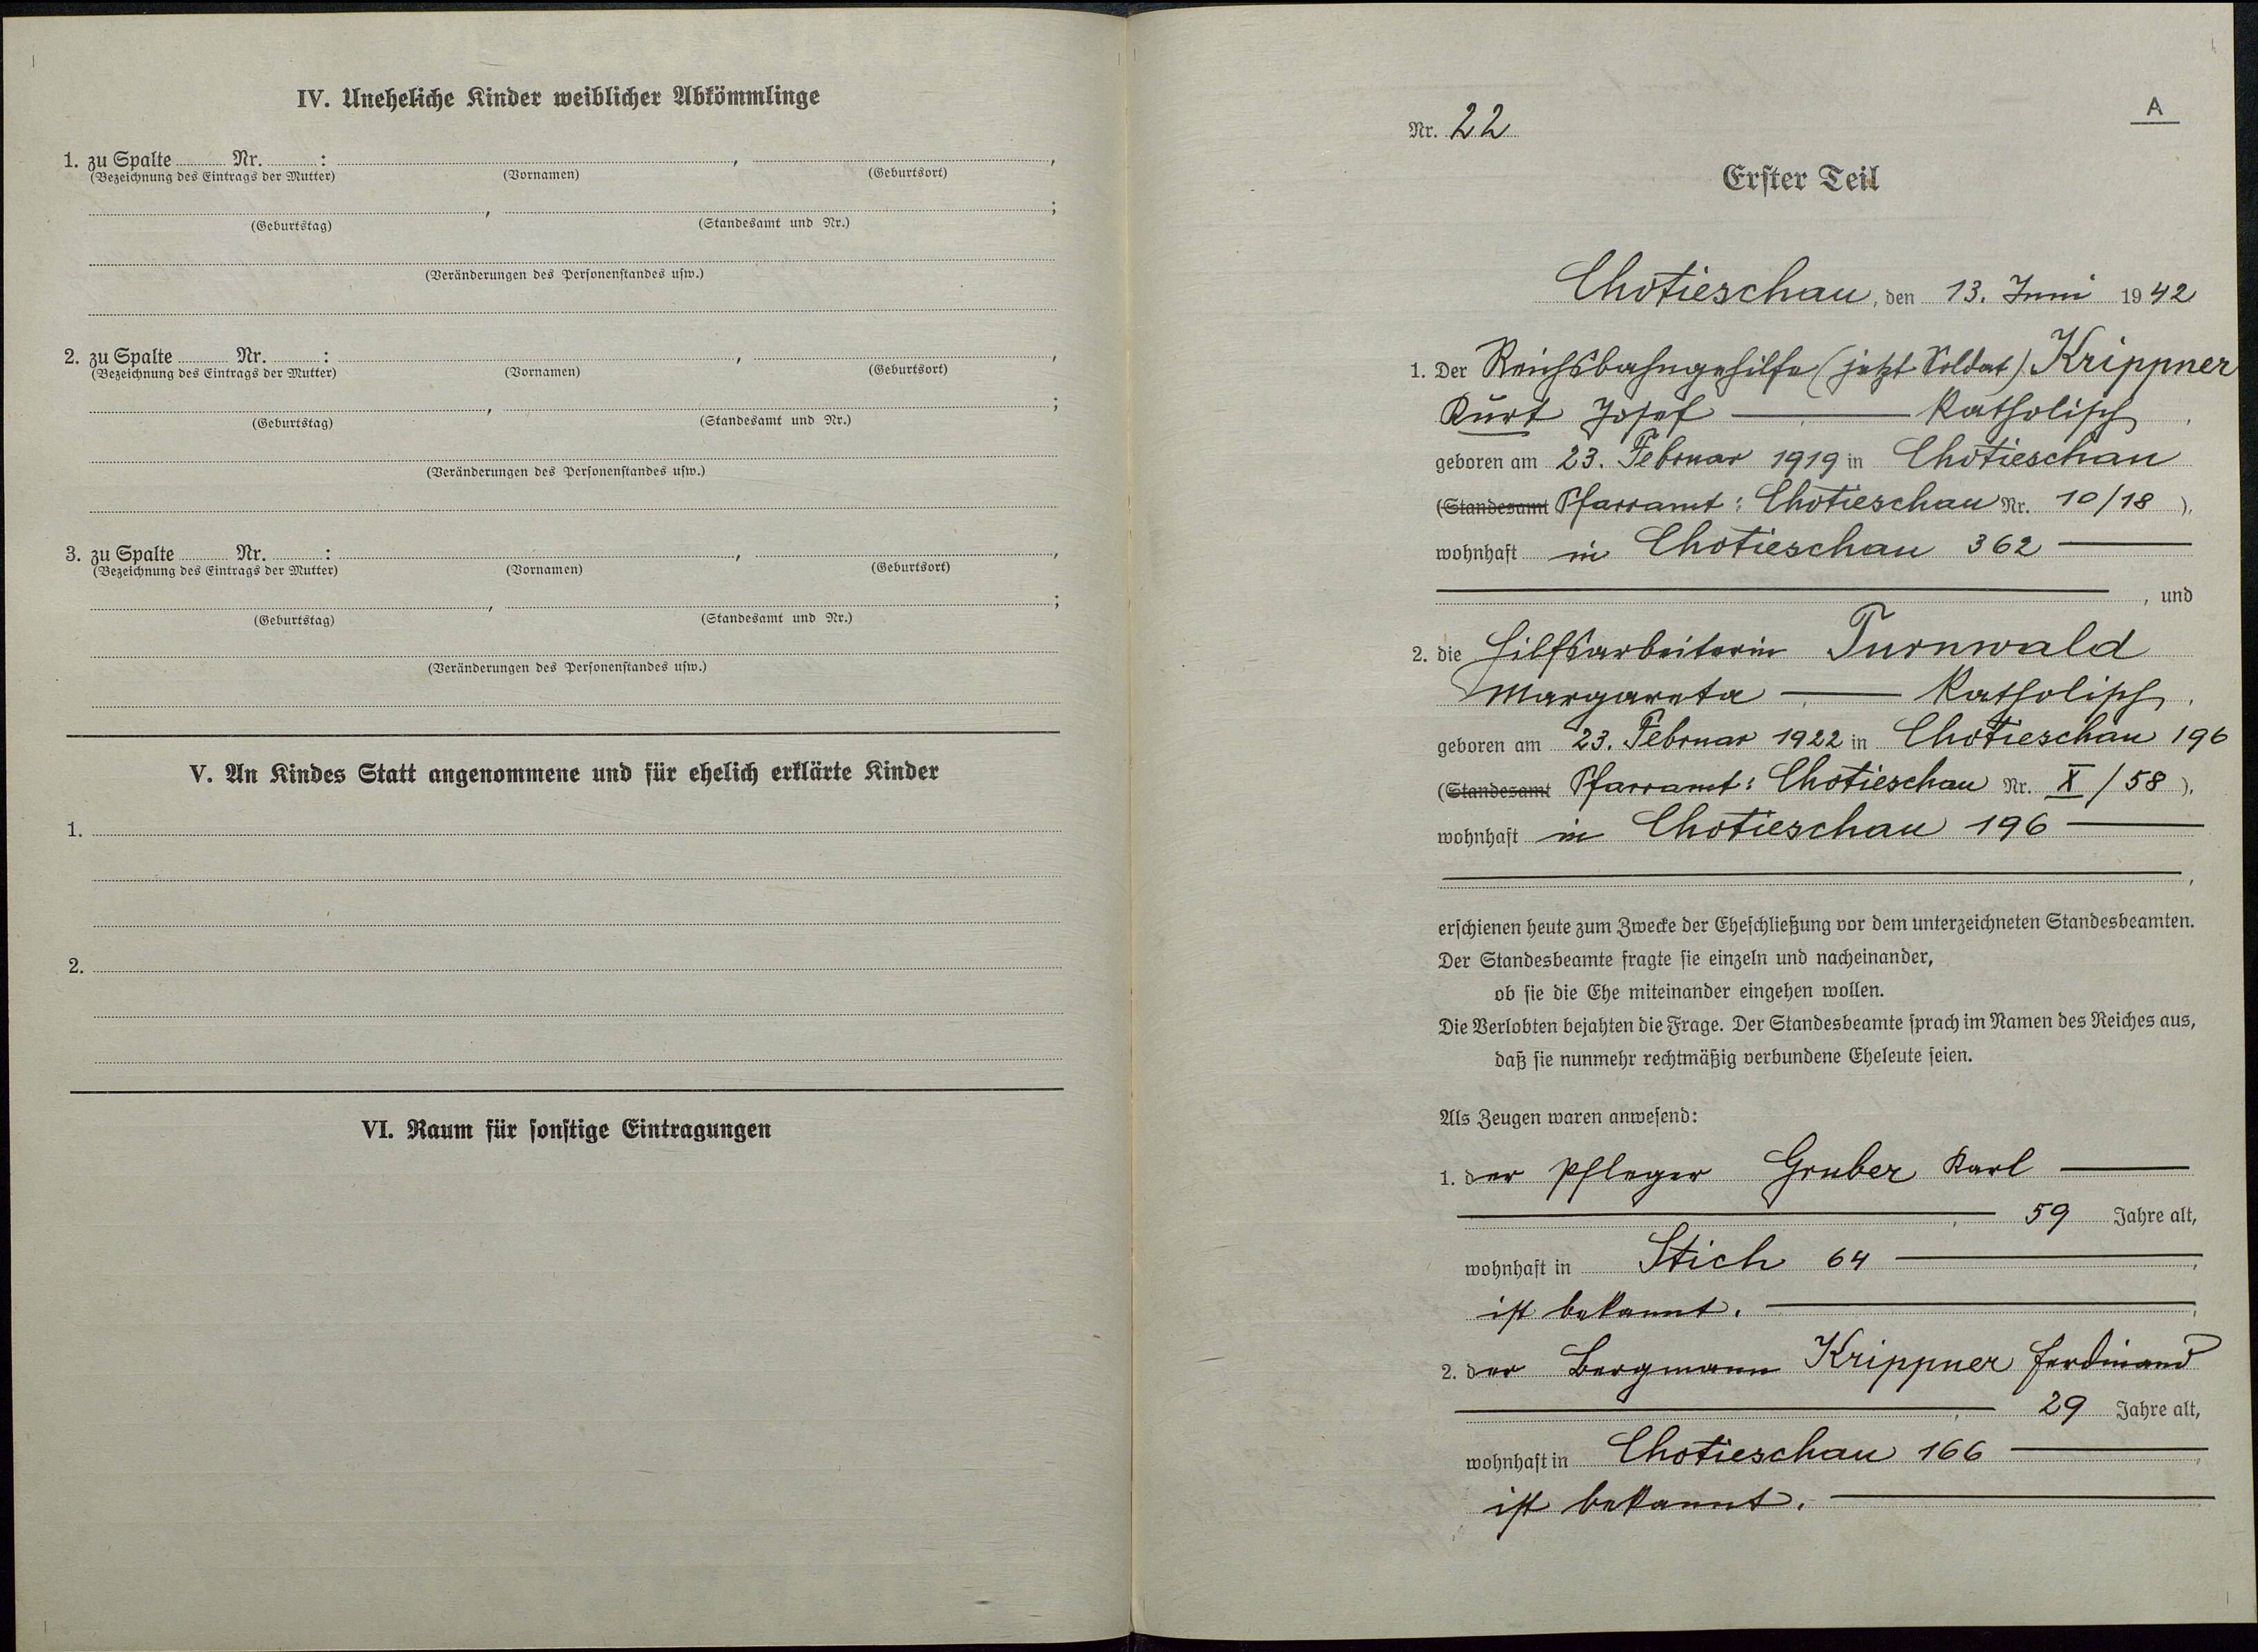 IV. Uneheliche Kinder weiblicher Abkömmlinge
1. zu Spalte Nr. : , ,
(Bezeichnung des Eintrags der Mutter) (Vornamen) (Geburtsort)
, ;
(Geburtstag) (Standesamt und Nr.)
(Veränderungen des Personenstandes usw.)
2. zu Spalte Nr. : , ,
(Bezeichnung des Eintrags der Mutter) (Vornamen) (Geburtsort)
, ;
(Geburtstag) (Standesamt und Nr.)
(Veränderungen des Personenstandes usw.)
3. zu Spalte Nr. : , ,
(Bezeichnung des Eintrags der Mutter) (Vornamen) (Geburtsort)
, ;
(Geburtstag) (Standesamt und Nr.)
(Veränderungen des Personenstandes usw.)
V. An Kindes Statt angenommene und für ehelich erklärte Kinder
1.
2.
VI. Raum für sonstige Eintragungen
A
Nr. 22
Erster Teil
Chotieschau, den 13. Juni 1942
1. Der Reichsbahngehilfe (jetzt Soldat) Krippner
Kurt Josef — katholisch,
geboren am 23. Februar 1919 in Chotieschau
(Standesamt Pfarramt: Chotieschau Nr. 10/18),
wohnhaft in Chotieschau 362 —
, und
2. die Hilfsarbeiterin Turnwald
Margareta — katholisch,
geboren am 23. Februar 1922 in Chotieschau 196
(Standesamt Pfarramt: Chotieschau Nr. X/58),
wohnhaft in Chotieschau 196 —
,
erschienen heute zum Zwecke der Eheschließung vor dem unterzeichneten Standesbeamten.
Der Standesbeamte fragte sie einzeln und nacheinander,
ob sie die Ehe miteinander eingehen wollen.
Die Verlobten bejahten die Frage. Der Standesbeamte sprach im Namen des Reiches aus,
daß sie nunmehr rechtmäßig verbundene Eheleute seien.
Als Zeugen waren anwesend:
1. der Pfleger Gruber Karl —
, 59 Jahre alt,
wohnhaft in Stich 64 —,
ist bekannt. —,
2. der Bergmann Krippner Ferdinand
, 29 Jahre alt,
wohnhaft in Chotieschau 166 —,
ist bekannt. —